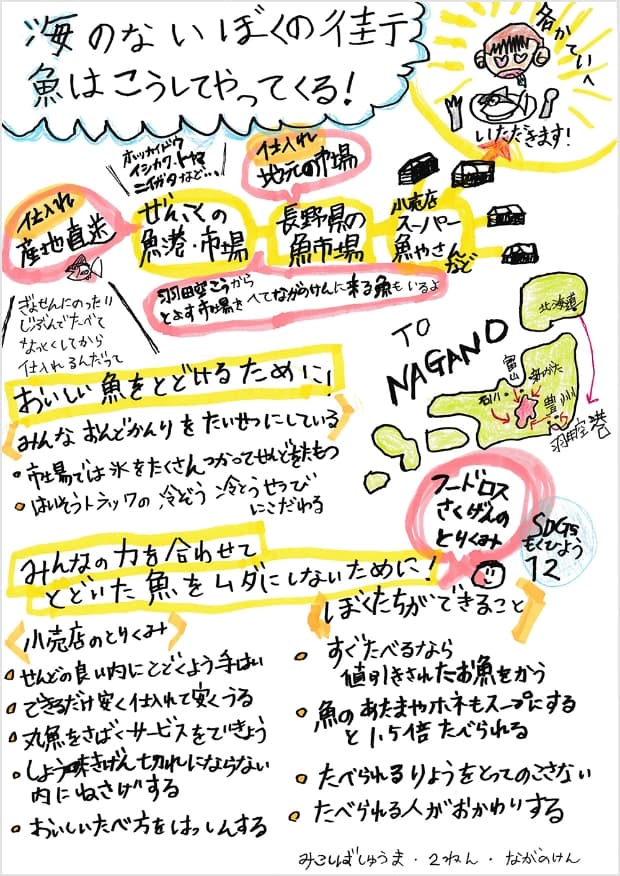 海のないぼくの街に
魚はこうしてやってくる!
各かていへ
いただきます!
ホッカイドウ
イシカワ、トヤマ
ニイガタなど…
仕入れ
産地直送
ぜんこくの
魚港・市場
仕入れ
地元の市場
長野県の
魚市場
小売店
スーパー
魚やさん
など
羽田空こうから
とよす市場をへてながのけんに来る魚もいるよ
ぎょせんにのったり
じぶんでたべて
なっとくしてから
仕入れるんだって
TO
NAGANO
北海道
富山
新がた
石川
豊川
羽田空港
おいしい魚をとどけるために!
みんなおんどかんりをたいせつにしている
・市場では氷をたくさんつかってせんどをたもつ
・はいそうトラックの冷ぞう冷とうせつび
にこだわる
フードロス
さくげんの
とりくみ
SDGs
もくひょう
12
みんなの力を合わせて
とどいた魚をムダにしないために!
小売店のとりくみ
・せんどの良い内にとどくよう手はい
・できるだけ安く仕入れて安くうる
・丸魚をさばくサービスをていきょう
・しょう味きげん切れにならない
内にねさげする
・おいしいたべ方をはっしんする
ぼくたちができること
・すぐたべるなら
値引きされたお魚をかう
・魚のあたまやホネもスープにする
と1.5倍たべられる
・たべられるりょうをとってのこさない
・たべられる人がおかわりする
みこしばしゅうま・2ねん・ながのけん